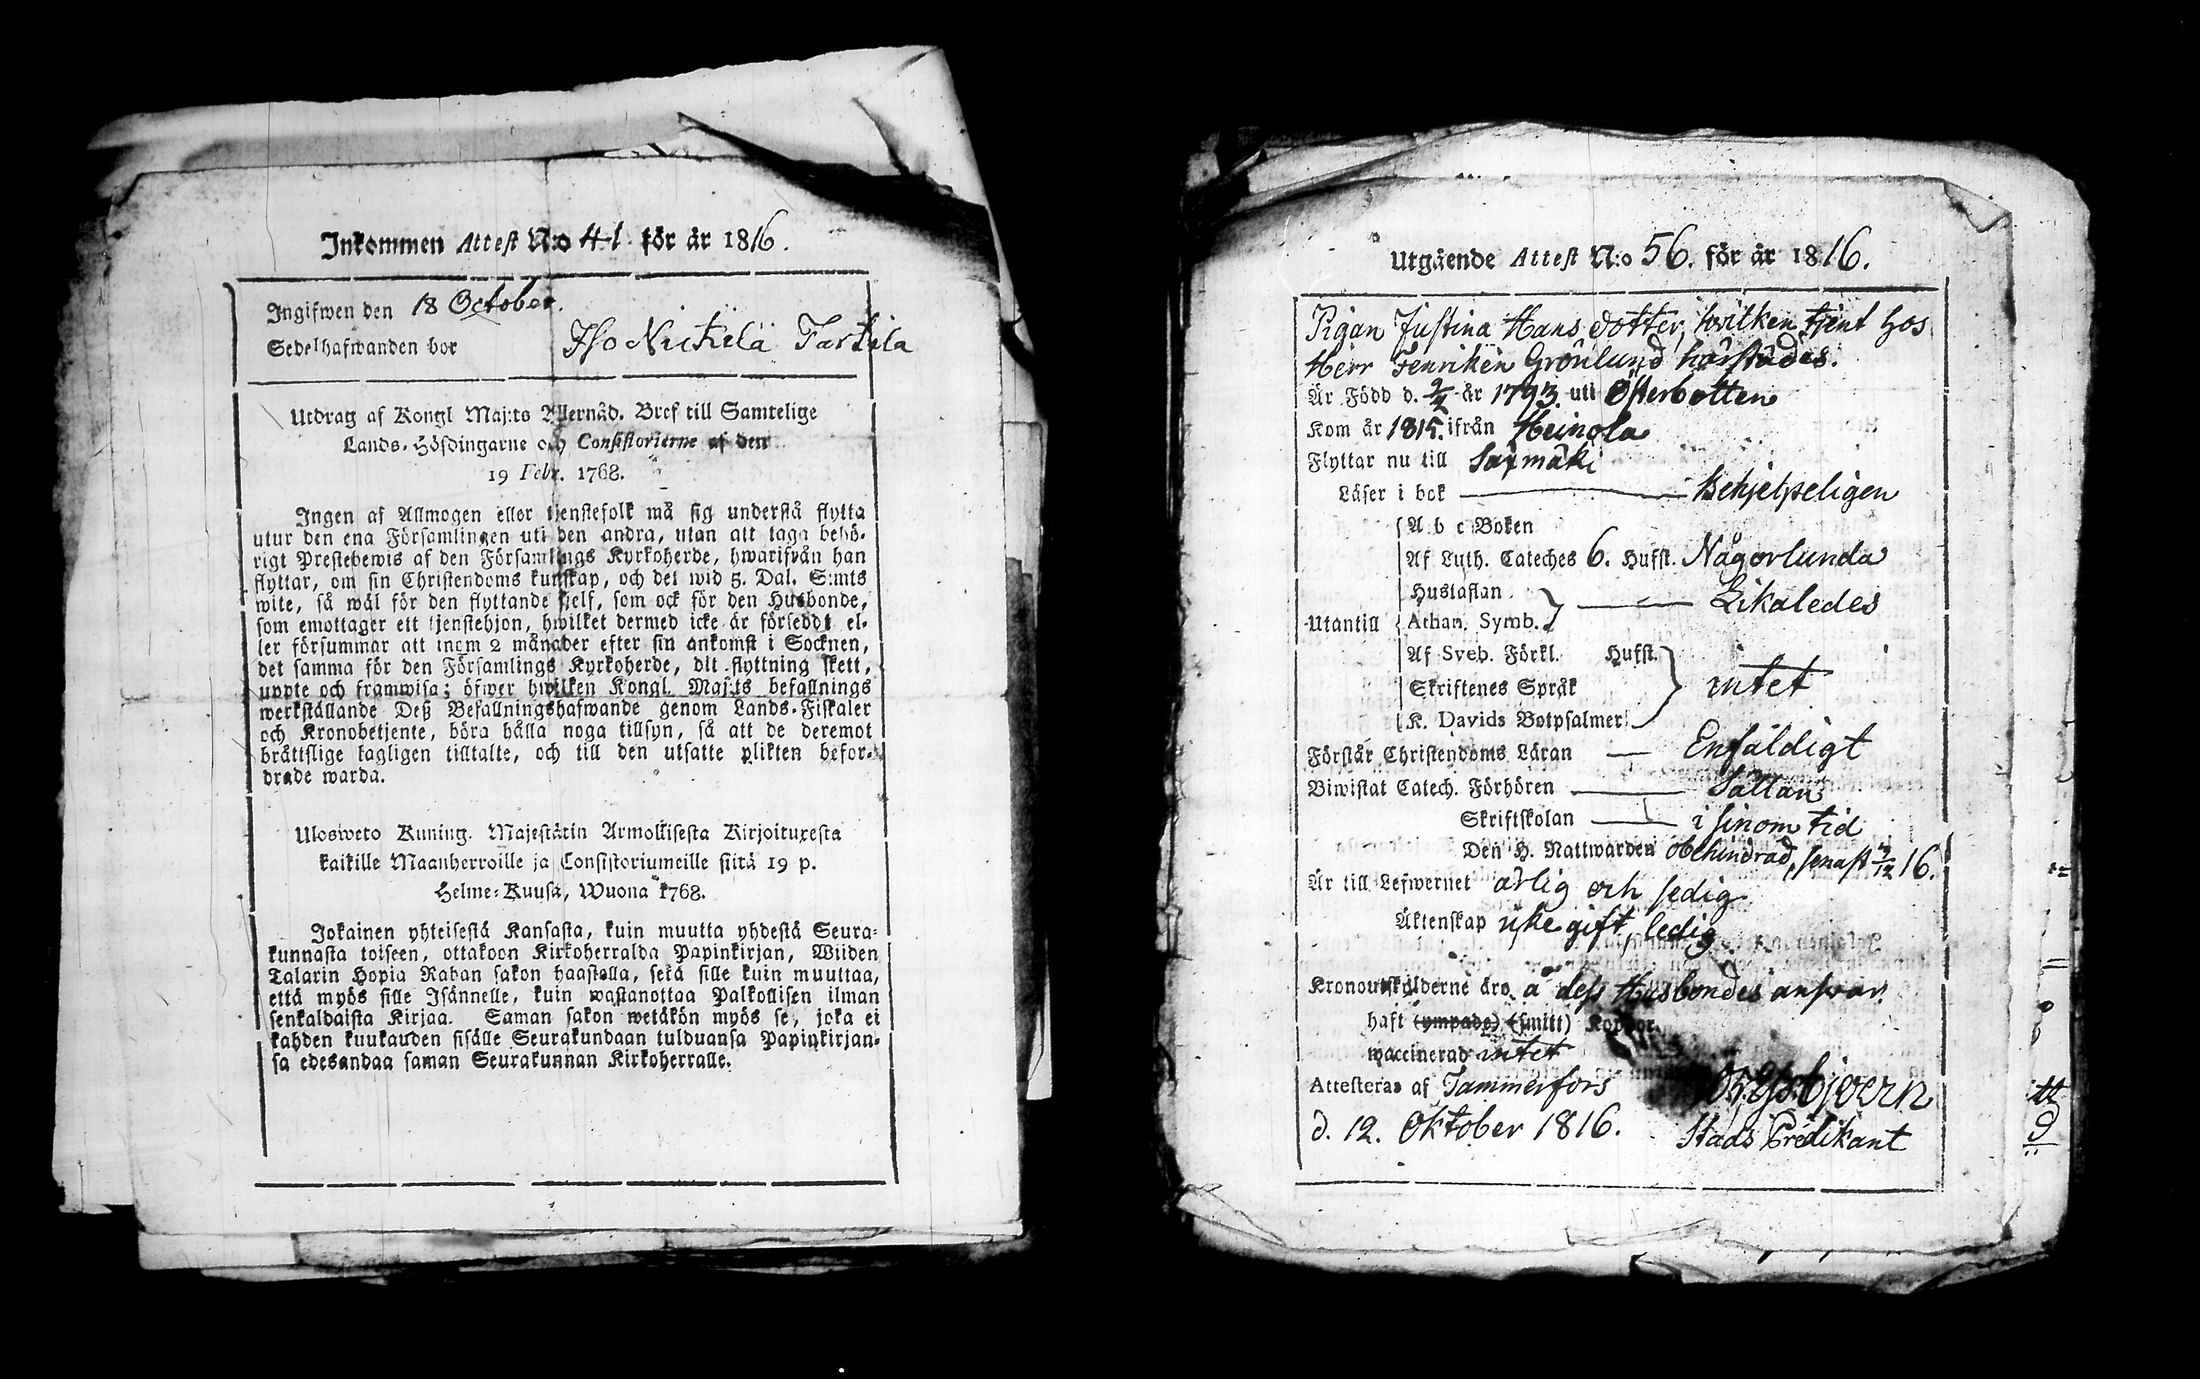 Inkommen Attest N:o 41 för år 1816.
Ingifwen den 18 October.
Sedelhafwanden bor Iso Nickilä Tarkila
Utdrag af Kongl Maj:ts Allernåd. Bref till Samtelige
Lands-Höfdingarne och Consistorierne af den
19 Febr. 1768.
Ingen af Allmogen eller tjenstefolk må sig understå flytta
utur den ena Församlingen uti den andra, utan att taga behö-
rigt Prestebewis af den Församlings Kyrkoherde, hwarifrån han
flyttar, om sin Christendoms kunskap, och det wid 5. Dal. S:mts
wite, så wäl för den flyttande sjelf, som ock för den Husbonde,
som emottager ett tjenstehjon, hwilket dermed icke är försedd; el-
ler försummar att inom 2 månader efter sin ankomst i Socknen,
det samma för den Församlings Kyrkoherde, dit flyttning skett,
uppte och framwisa; öfwer hwilken Kongl. Maj:ts befallnings
werkställande Deß Befallningshafwande genom Lands-Fiskaler
och Kronobetjente, böra hålla noga tillsyn, så att de deremot
bråttslige lagligen tilltalte, och till den utsatte plikten befor-
drade warda.
Ulosweto Kuning. Majestätin Armollisesta Kirjoituxesta
kaikille Maanherroille ja Consistoriumeille siitä 19 p.
Helme-Kuusa, Wuona 1768.
Jokainen yhteisestä Kansasta, kuin muutta yhdestä Seura-
kunnasta toiseen, ottakoon Kirkoherralda Papinkirjan, Wiiden
Talarin Hopia Rahan sakon haastolla, sekä sille kuin muuttaa,
että myös sille Isännelle, kuin wastanottaa Palkollisen ilman
senkaldaista Kirjaa. Saman sakon wetäkön myös se, joka ei
kahden kuukauden sisälle Seurakundaan tulduansa Papinkirjan-
sa edesandaa saman Seurakunnan Kirkoherralle.
Utgående Attest N:o 56. för år 1816.
Pigan Justina Hans dotter, hvilken tjent hos
Herr Fenriken Grönlund härstädes.
Är Född d. 9/2 år 1793. uti Österbotten
Kom år 1815. ifrån Heinola
Flyttar nu till Saxmäki
Läser i bok Behjelpeligen
A b c Boken
Af Luth. Cateches 6. Hufst. Någorlunda
Hustaflan
Utantill Athan. Symb. Likaledes
Af Sveb. Förkl. Hufst.
Skriftenes Språk intet
K. Davids Botpsalmer
Förstår Christendoms Läran Enfäldigt
Biwistat Catech. Förhören Sällan
Skriftskolan i sinom tid
Den H. Nattwarden obehindrad, senast 16.
Är till Lefwernet ärlig och sedig
Äktenskap icke gift, ledig
Kronoutskylderne äro å dess Husbondes answar.
haft (ympade) (smitt) Koppor.
waccinerad intet
Attesteras af Tammerfors
d. 12. Oktober 1816. Stads Predikant